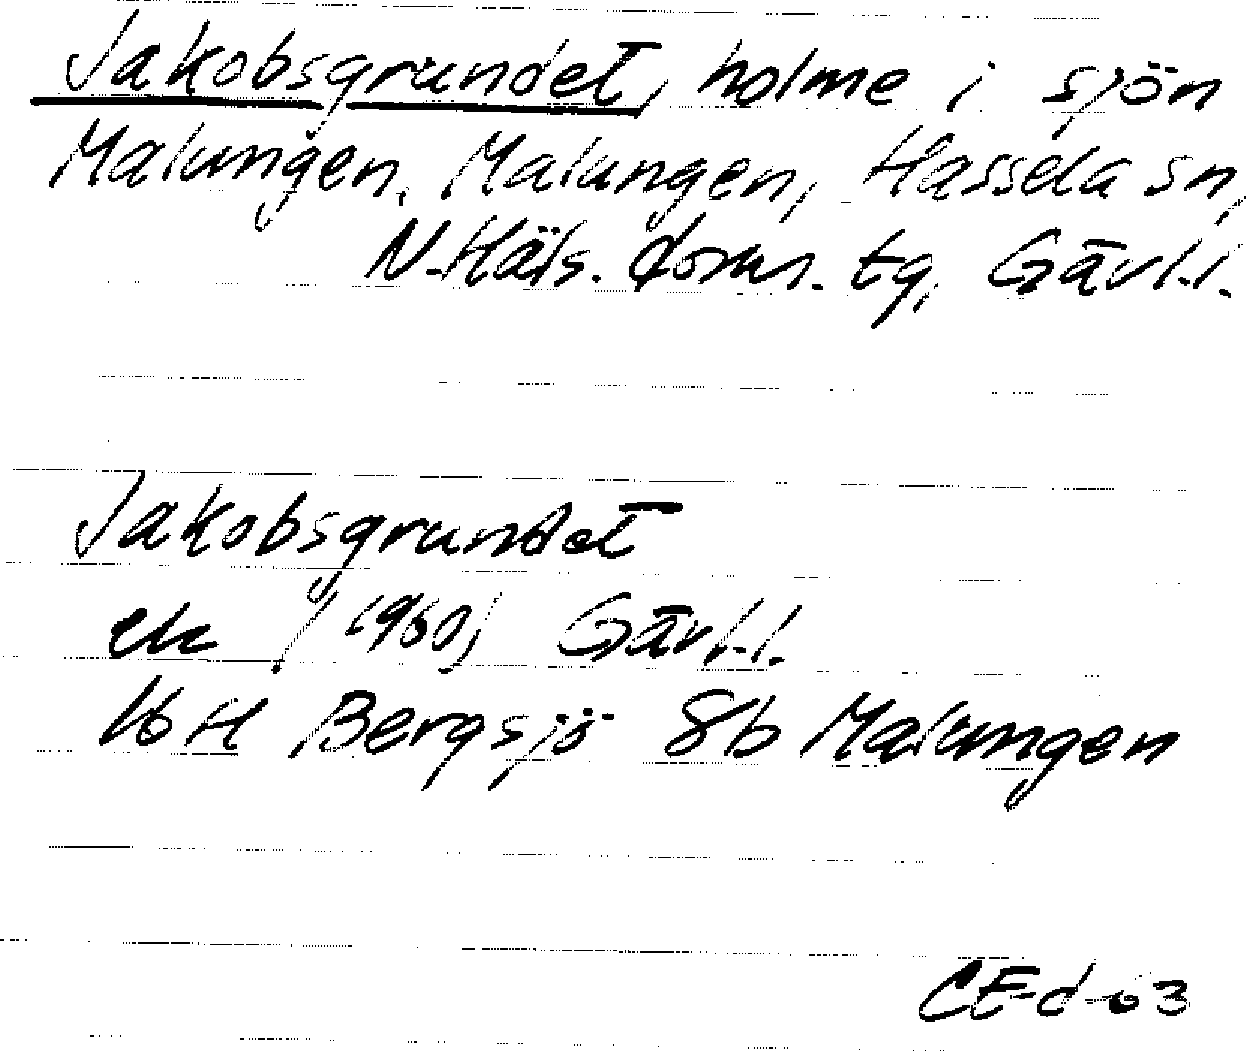 Jakobsgrundet, holme i sjön
Malungen, Malungen, Hassela sn,
N.Häls. doms. tg, Gävl.l.
Jakobsgrundet
ek / 1960, Gävl.l.
16H Bergsjö 8b Malungen
CE-d-63